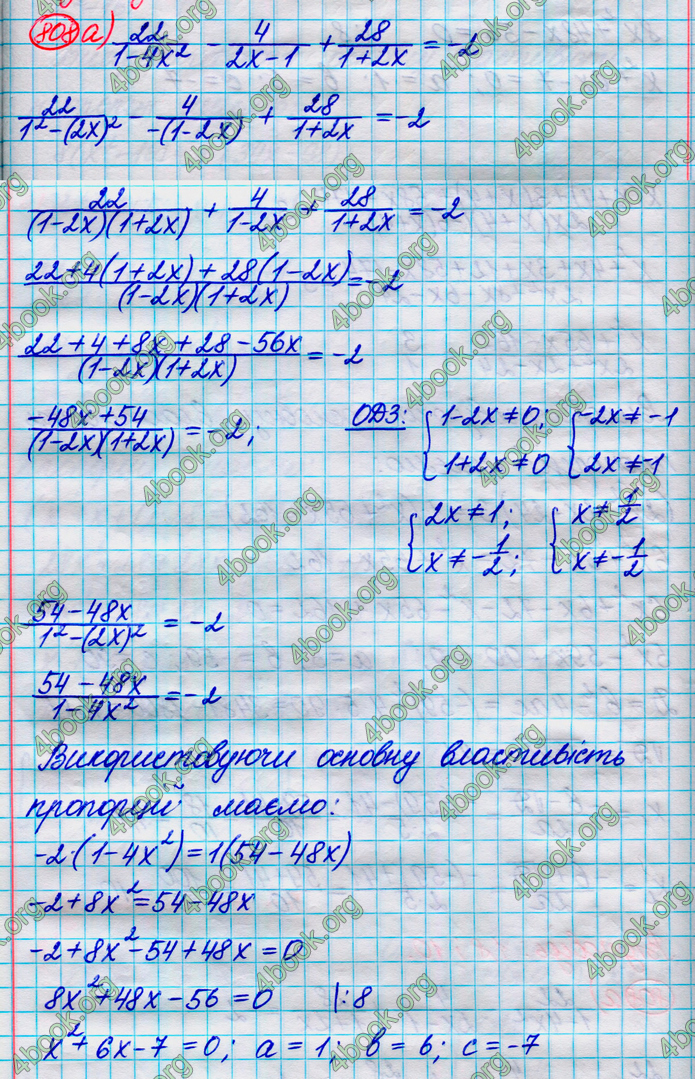 808 а) 22/(1-4x²) - 4/(2x-1) + 28/(1+2x) = -2
22/(1²-(2x)²) - 4/(-(1-2x)) + 28/(1+2x) = -2
22/((1-2x)(1+2x)) + 4/(1-2x) + 28/(1+2x) = -2
(22+4(1+2x)+28(1-2x))/((1-2x)(1+2x)) = -2
(22+4+8x+28-56x)/((1-2x)(1+2x)) = -2
(-48x+54)/((1-2x)(1+2x)) = -2; ОДЗ: { 1-2x≠0; 1+2x≠0 { -2x≠-1 2x≠-1
{ 2x≠1; x≠-1/2; { x≠1/2 x≠-1/2
(54-48x)/(1²-(2x)²) = -2
(54-48x)/(1-4x²) = -2
Використовуючи основну властивість
пропорції маємо:
-2·(1-4x²)=1(54-48x)
-2+8x²=54-48x
-2+8x²-54+48x=0
8x²+48x-56=0 |:8
x²+6x-7=0; a=1; в=6; c=-7
4book.org